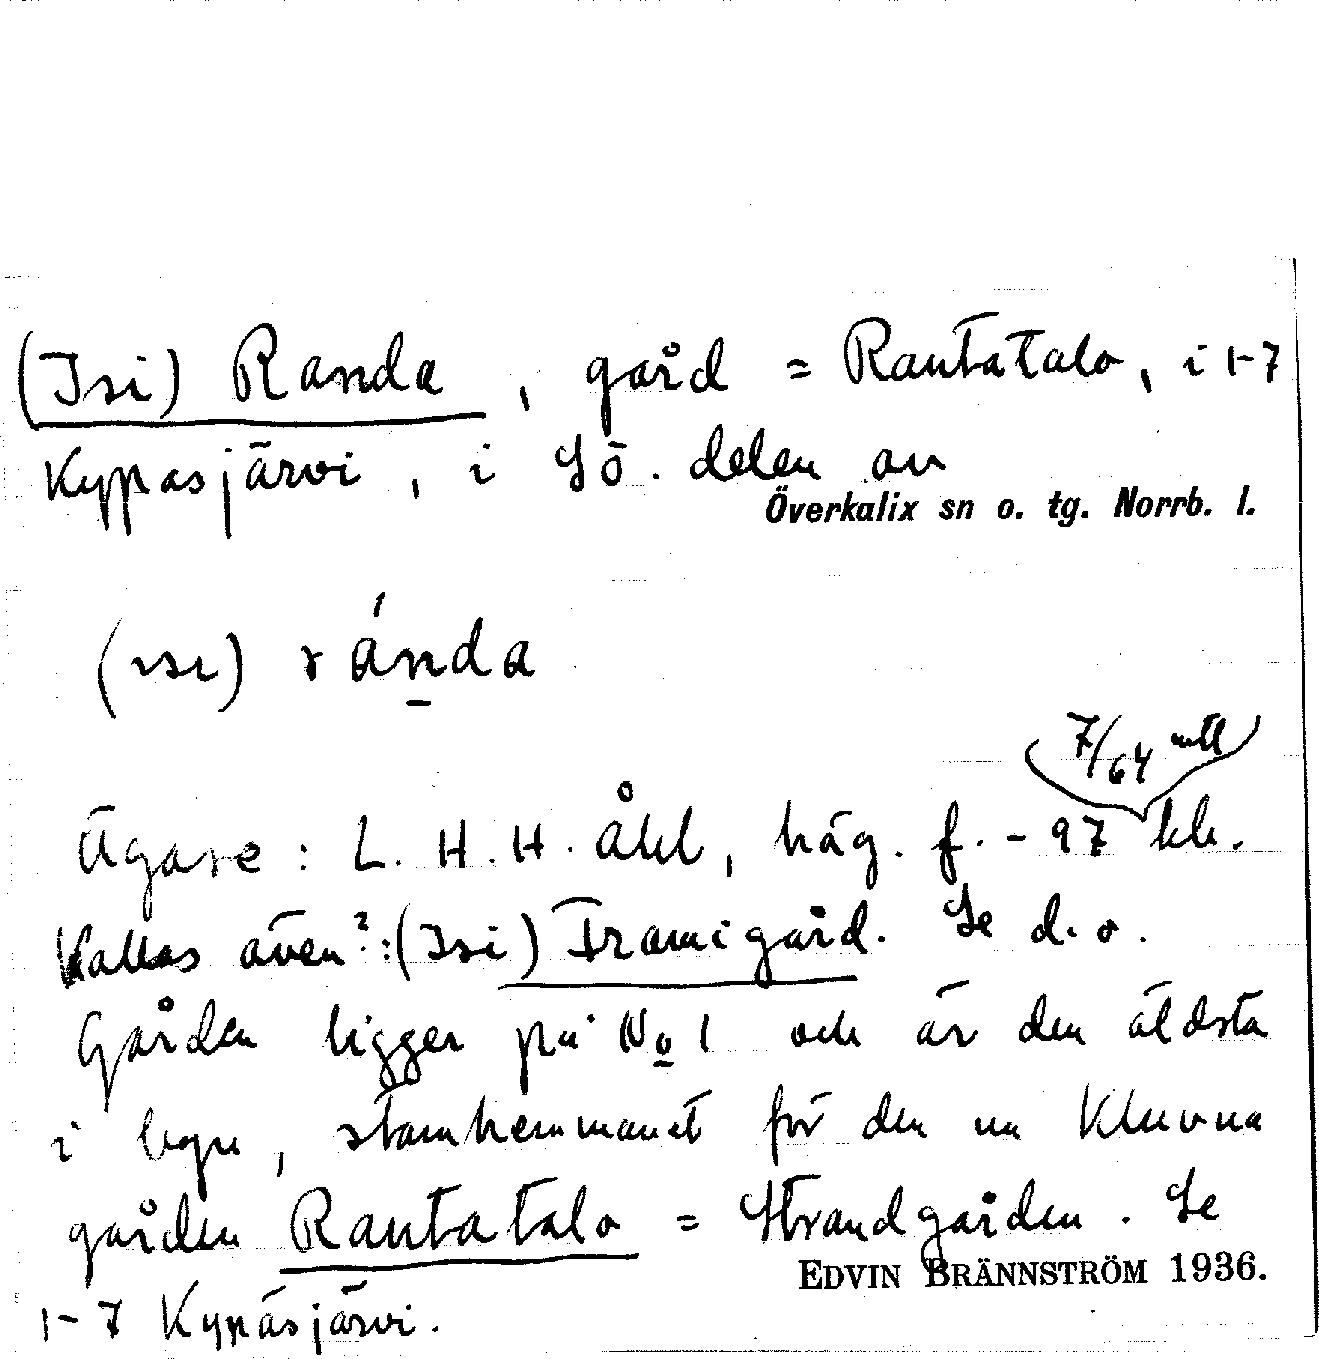 (Isi) Randa, gård = Rantatalo, i 1-7
Kypasjärvi, i Sö. delen av
Överkalix sn o. tg. Norrb. l.
(ısı) ránda
7/64 mtl
Ägare: L. H. H. Åhl, häg. f. - 97 kh.
Kallas även?: (Isi) Framigård. Se d. o.
Gården ligger på No 1 och är den äldsta
i byn, stamhemmanet för den nu kluvna
gården Rantatalo = Strandgården. Se
EDVIN BRÄNNSTRÖM 1936.
1-7 Kypäsjärvi.